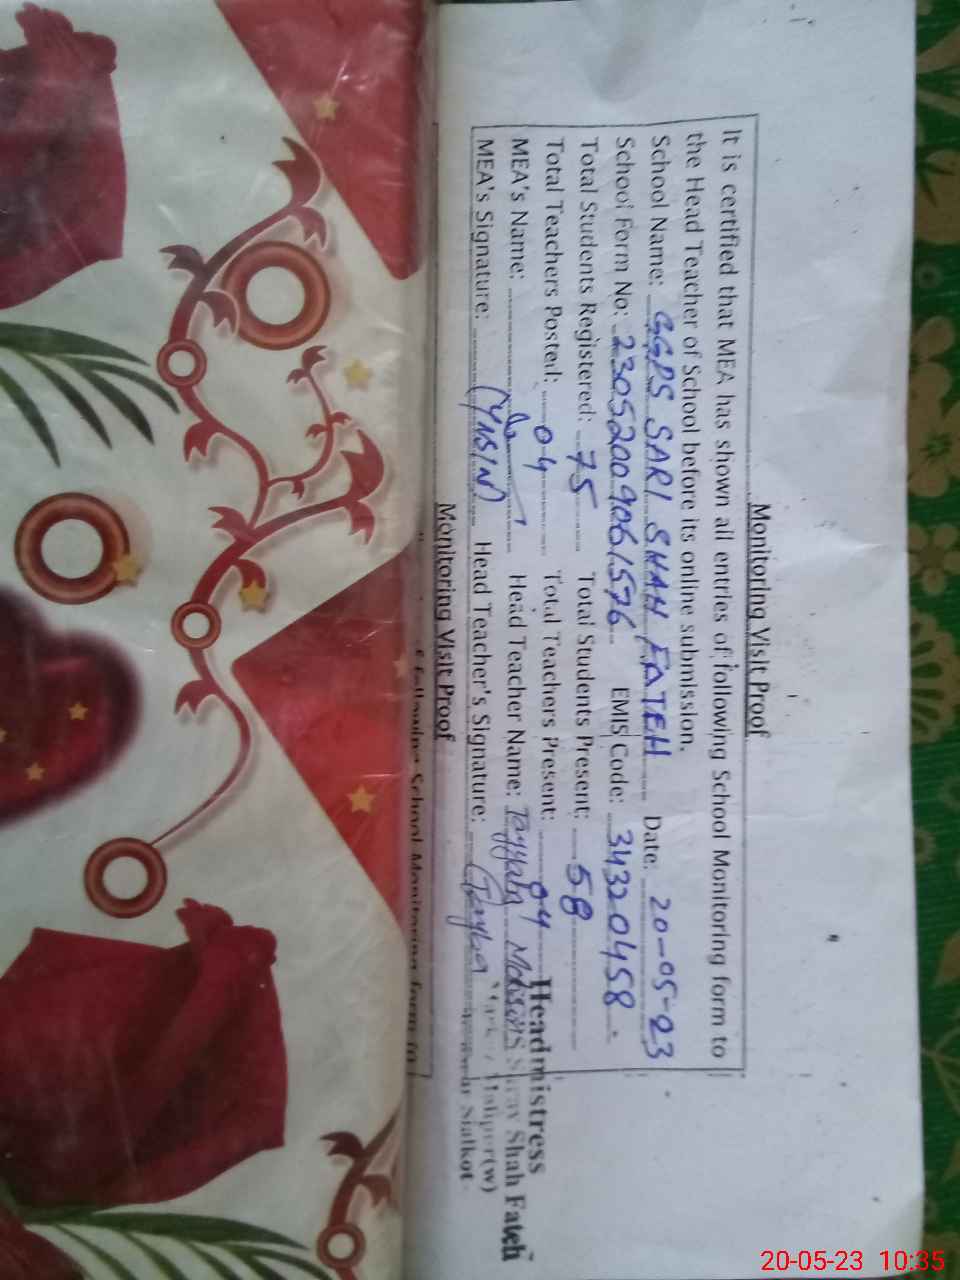 Monitoring Visit Proof
It is certified that MEA has shown all entries of following School Monitoring form to
the Head Teacher of School before its online submission.
School Name: GGPS SARI SHAH FATEH Date: 20-05-23
School Form No: 23052009061576 EMIS Code: 34320458
Total Students Registered: 75 Total Students Present: 58
Total Teachers Posted: 04 Total Teachers Present: 04
MEA's Name: Head Teacher Name: Tayyaba
MEA's Signature: (YASIN) Head Teacher's Signature:
Headmistress
Shah Fateh
Sialkot
Monitoring Visit Proof
following School Monitoring form to
20-05-23 10:35